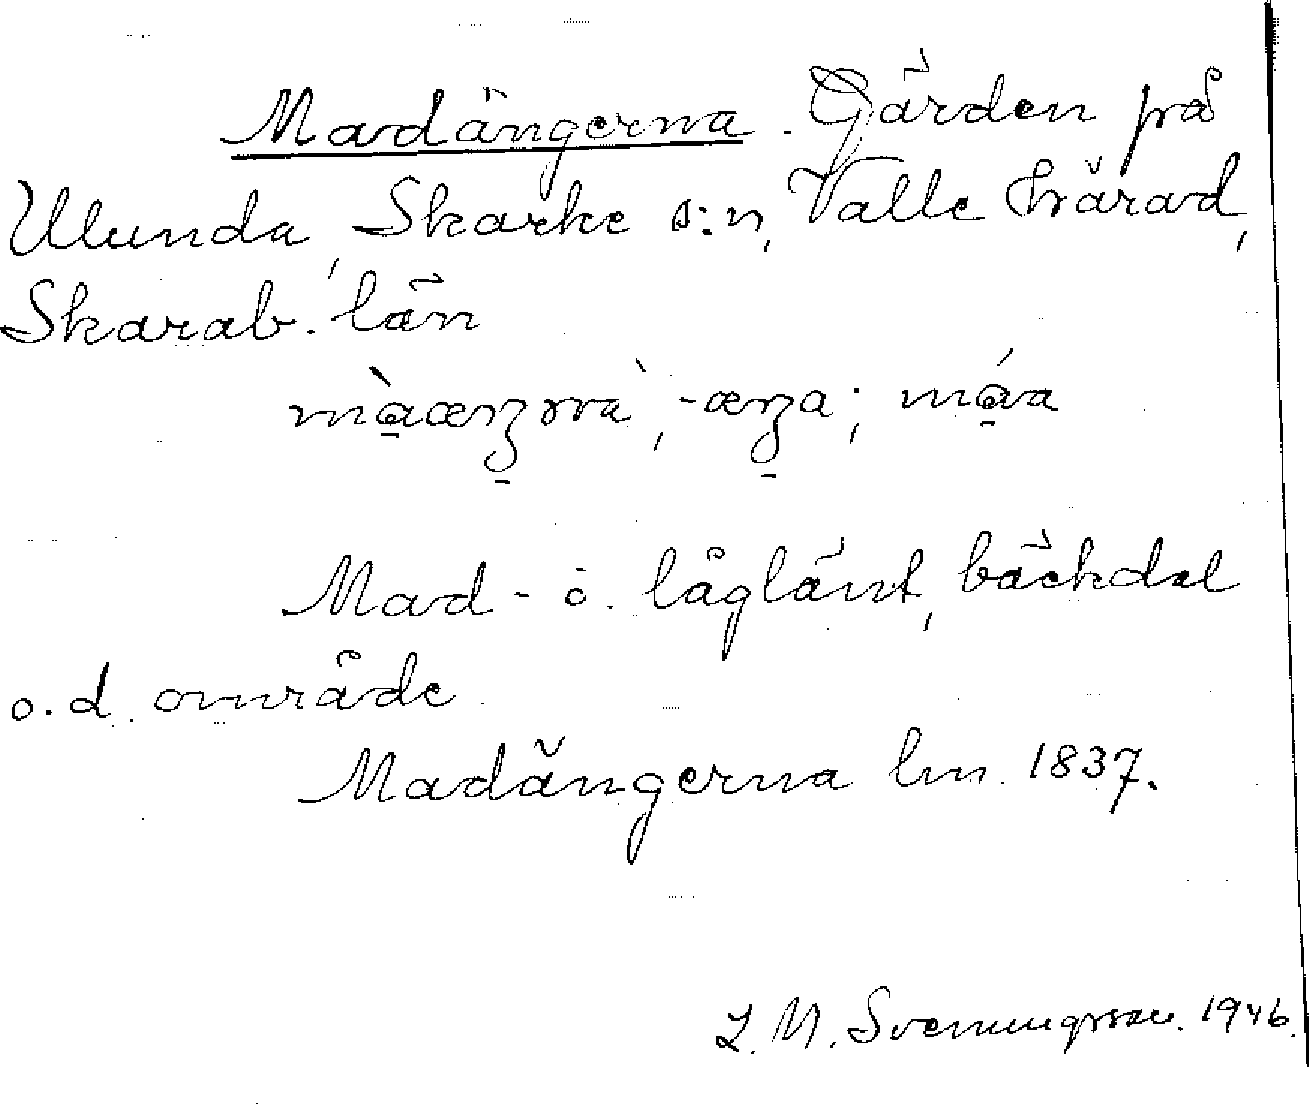 Madängerna. Gärden på
Ulunda, Skarke s:n, Valle härad,
Skarab. län
Mad- o. låglänt, bäckdal
o.d. område
Madängerna lm. 1837.
L. M. Svenungsson. 1946.